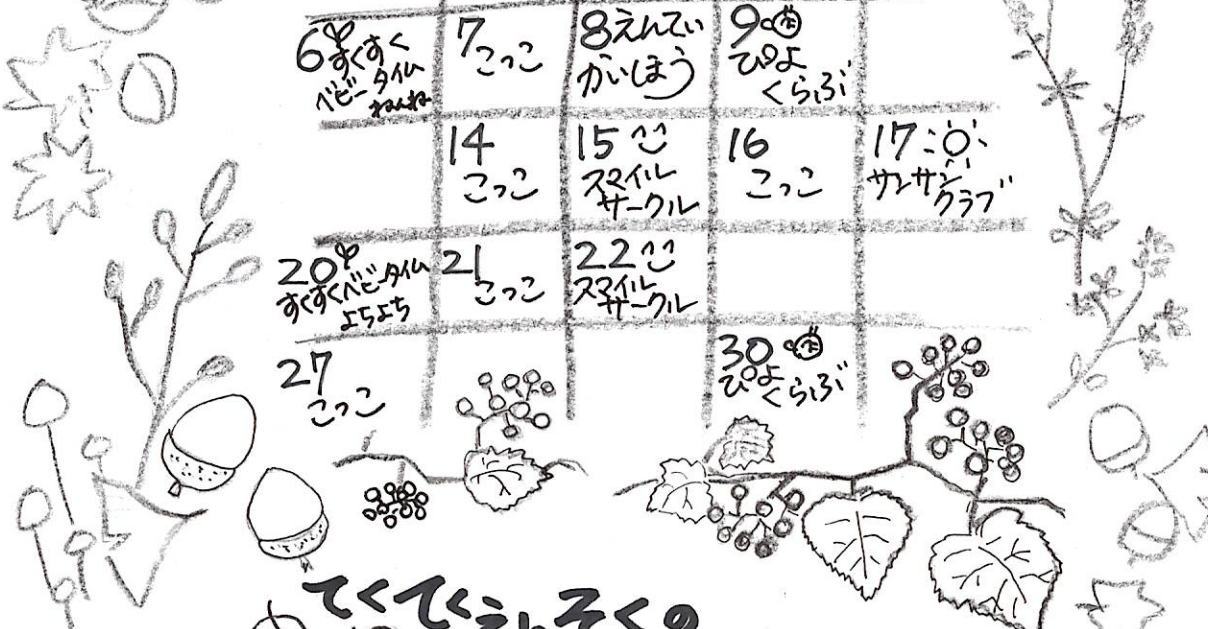 6 すくすく
ベビータイム
ねんね
7
こっこ
8 えんてい
かいほう
9
ぴよ
くらぶ
14
こっこ
15
スマイル
サークル
16
こっこ
17
サンサン
クラブ
20
すくすくベビータイム
よちよち
21
こっこ
22
スマイル
サークル
27
こっこ
30
ぴよ
くらぶ
てくてくえんそくの